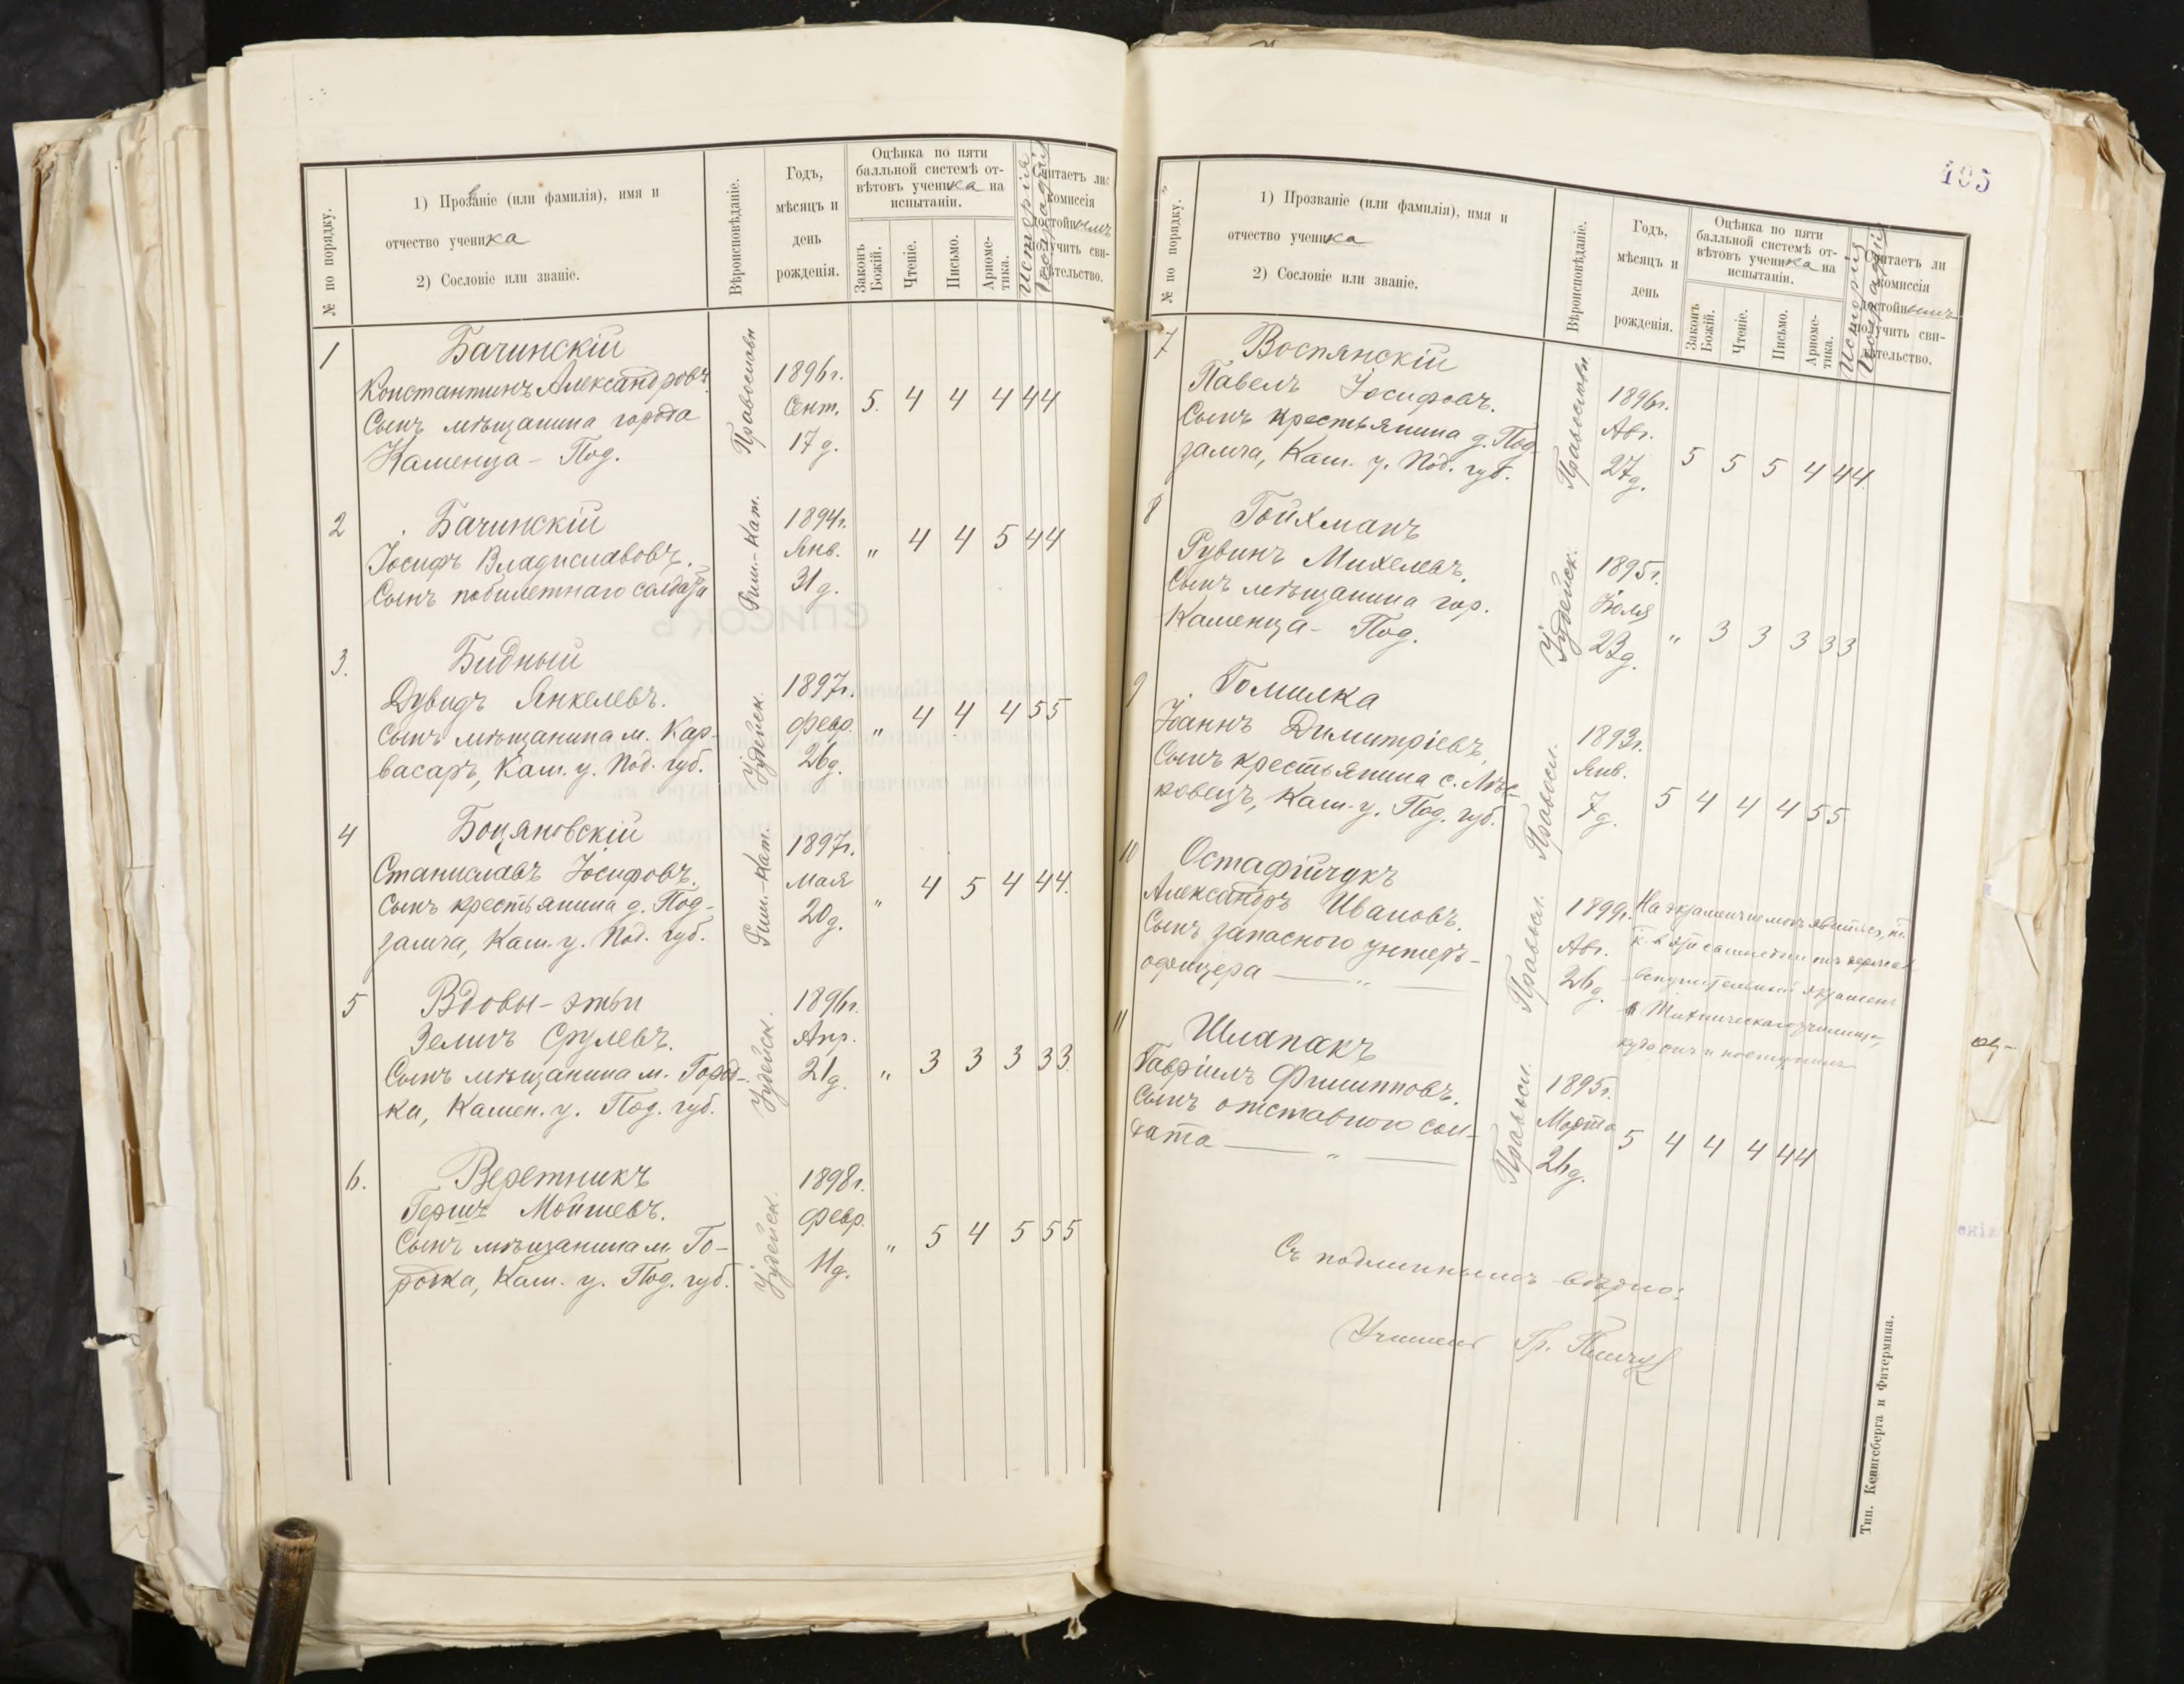 № по порядку.
1) Прозваніе (или фамилія), имя и
отчество ученика
2) Сословіе или званіе.
Вѣроисповѣданіе.
Годъ,
мѣсяцъ и
день
рожденія.
Оцѣнка по пяти
балльной системѣ от-
вѣтовъ ученика на
испытаніи.
Законъ
Божій.
Чтеніе.
Письмо.
Ариѳме-
тика.
Исторія
Географія
Считаетъ ли
комиссія
достойнымъ
получить сви-
дѣтельство.
1 Бачинскій
Константинъ Александровъ.
Сынъ мѣщанина города
Каменца - Под.
Православн
1896г.
Сент. 5. 4 4 4 4 4
17 д.
2 Бачинскій
Іосифъ Владиславовъ.
Сынъ побилетнаго солдата
Рим.-Кат.
1894г.
Янв. " 4 4 5 4 4
31 д.
3. Бидный
Дувидъ Янкелевъ.
Сынъ мѣщанина м. Кар-
васаръ, Кам. у. Под. губ.
Іудейск.
1897г.
Февр. " 4 4 4 5 5
26 д.
4 Боцяновскій
Станиславъ Іосифовъ.
Сынъ крестьянина д. Под-
замча, Кам. у. Под. губ.
Рим.-Кат.
1897г.
Мая " 4 5 4 4 4.
20 д.
5 Вдовы-эты
Зелигъ Срулевъ.
Сынъ мѣщанина м. Город-
ка, Камен. у. Под. губ.
Іудейск.
1896г.
Апр.
21 д. " 3 3 3 3 3
6. Веретникъ
Гершъ Мойшевъ.
Сынъ мѣщанина м. Го-
родка, Кам. у. Под. губ.
Іудейск.
1898г.
Февр. " 5 4 5 5 5
11 д.
405
№ по порядку.
1) Прозваніе (или фамилія), имя и
отчество ученика
2) Сословіе или званіе.
Вѣроисповѣданіе.
Годъ,
мѣсяцъ и
день
рожденія.
Оцѣнка по пяти
балльной системѣ от-
вѣтовъ ученика на
испытаніи.
Законъ
Божій.
Чтеніе.
Письмо.
Ариѳме-
тика.
Исторія
Географія
Считаетъ ли
комиссія
достойнымъ
получить сви-
дѣтельство.
7 Воспянскій
Павелъ Іосифовъ.
Сынъ крестьянина д. Под-
замча, Кам. у. Под. губ.
Православн
1896г.
Авг.
27 д. 5 5 5 4 4 4.
8 Гойхманъ
Рувинъ Михелевъ.
Сынъ мѣщанина гор.
Каменца - Под.
Іудейск.
1895г.
Іюля
23 д. " 3 3 3 3 3
9 Гомилка
Іоаннъ Димитріевъ
Сынъ крестьянина с.
Кам. у. Под. губ.
Правосл.
1893г.
Янв.
7 д. 5 4 4 4 5 5
10 Остафійчукъ
Александръ Ивановъ.
Сынъ запасного унтеръ-
офицера — " —
Правосл.
1899г.
Авг.
26 д.
На экзаменъ не могъ явиться,
вступительный экзаменъ
училища,
куда онъ и поступилъ
11 Шлапакъ
Гавріилъ Филипповъ.
Сынъ отставного сол-
дата — " —
Правосл.
1895г.
Марта 5 4 4 4 4 4
26 д.
Съ подлиннымъ вѣрно:
Учитель Гр.
Тип. Кенигсберга и Фитермана.